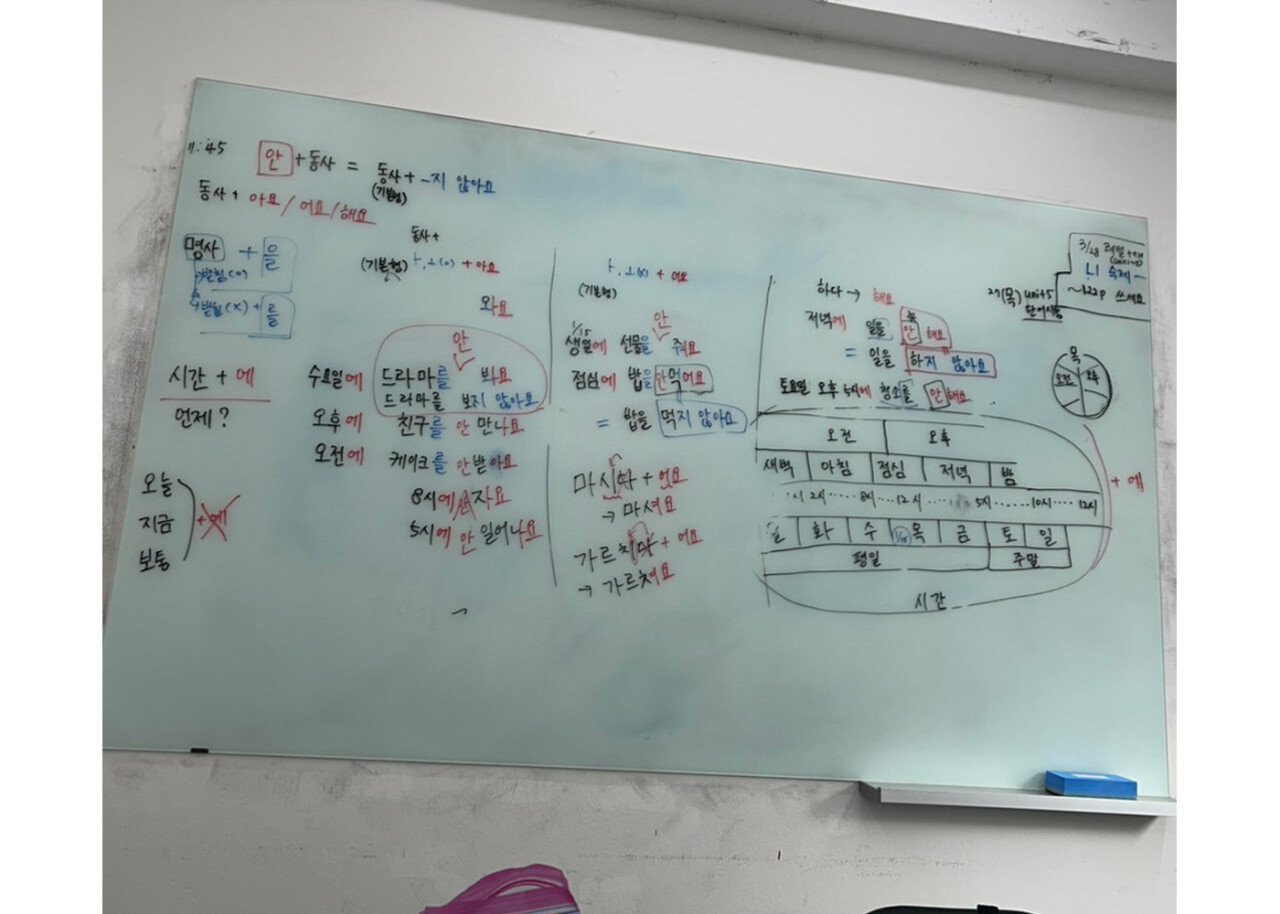 11:45
안 + 동사 = 동사 + -지 않아요
(기본형)
동사 + 아요 / 어요 / 해요
명사 + 을
받침(o)
받침(x) + 를
시간 + 에
언제?
오늘
지금
보통
+에
동사 +
(기본형) ㅏ,ㅗ(o) + 아요
와요
안
수요일에 드라마를 봐요
드라마를 보지 않아요
오후에 친구를 안 만나요
오전에 케이크를 안 받아요
8시에 안 자요
5시에 안 일어나요
ㅏ,ㅗ(x) + 어요
(기본형)
안
생일에 선물을 줘요
점심에 밥을 안 먹어요
= 밥을 먹지 않아요
마시다 + 어요
→ 마셔요
가르치다 + 어요
→ 가르쳐요
하다 → 해요
저녁에 일을 안 해요
= 일을 하지 않아요
토요일 오후 5시에 청소를 안 해요
3/28
L1 숙제
~122p 쓰세요
27(목) unit5
단어시험
목
오전 오후
오전 오후
새벽 아침 점심 저녁 밤
1시 2시 ···· 8시 ···· 12시 ···· 5시 ···· 10시 ···· 12시
월 화 수 목 금 토 일
평일 주말
시간
+ 에